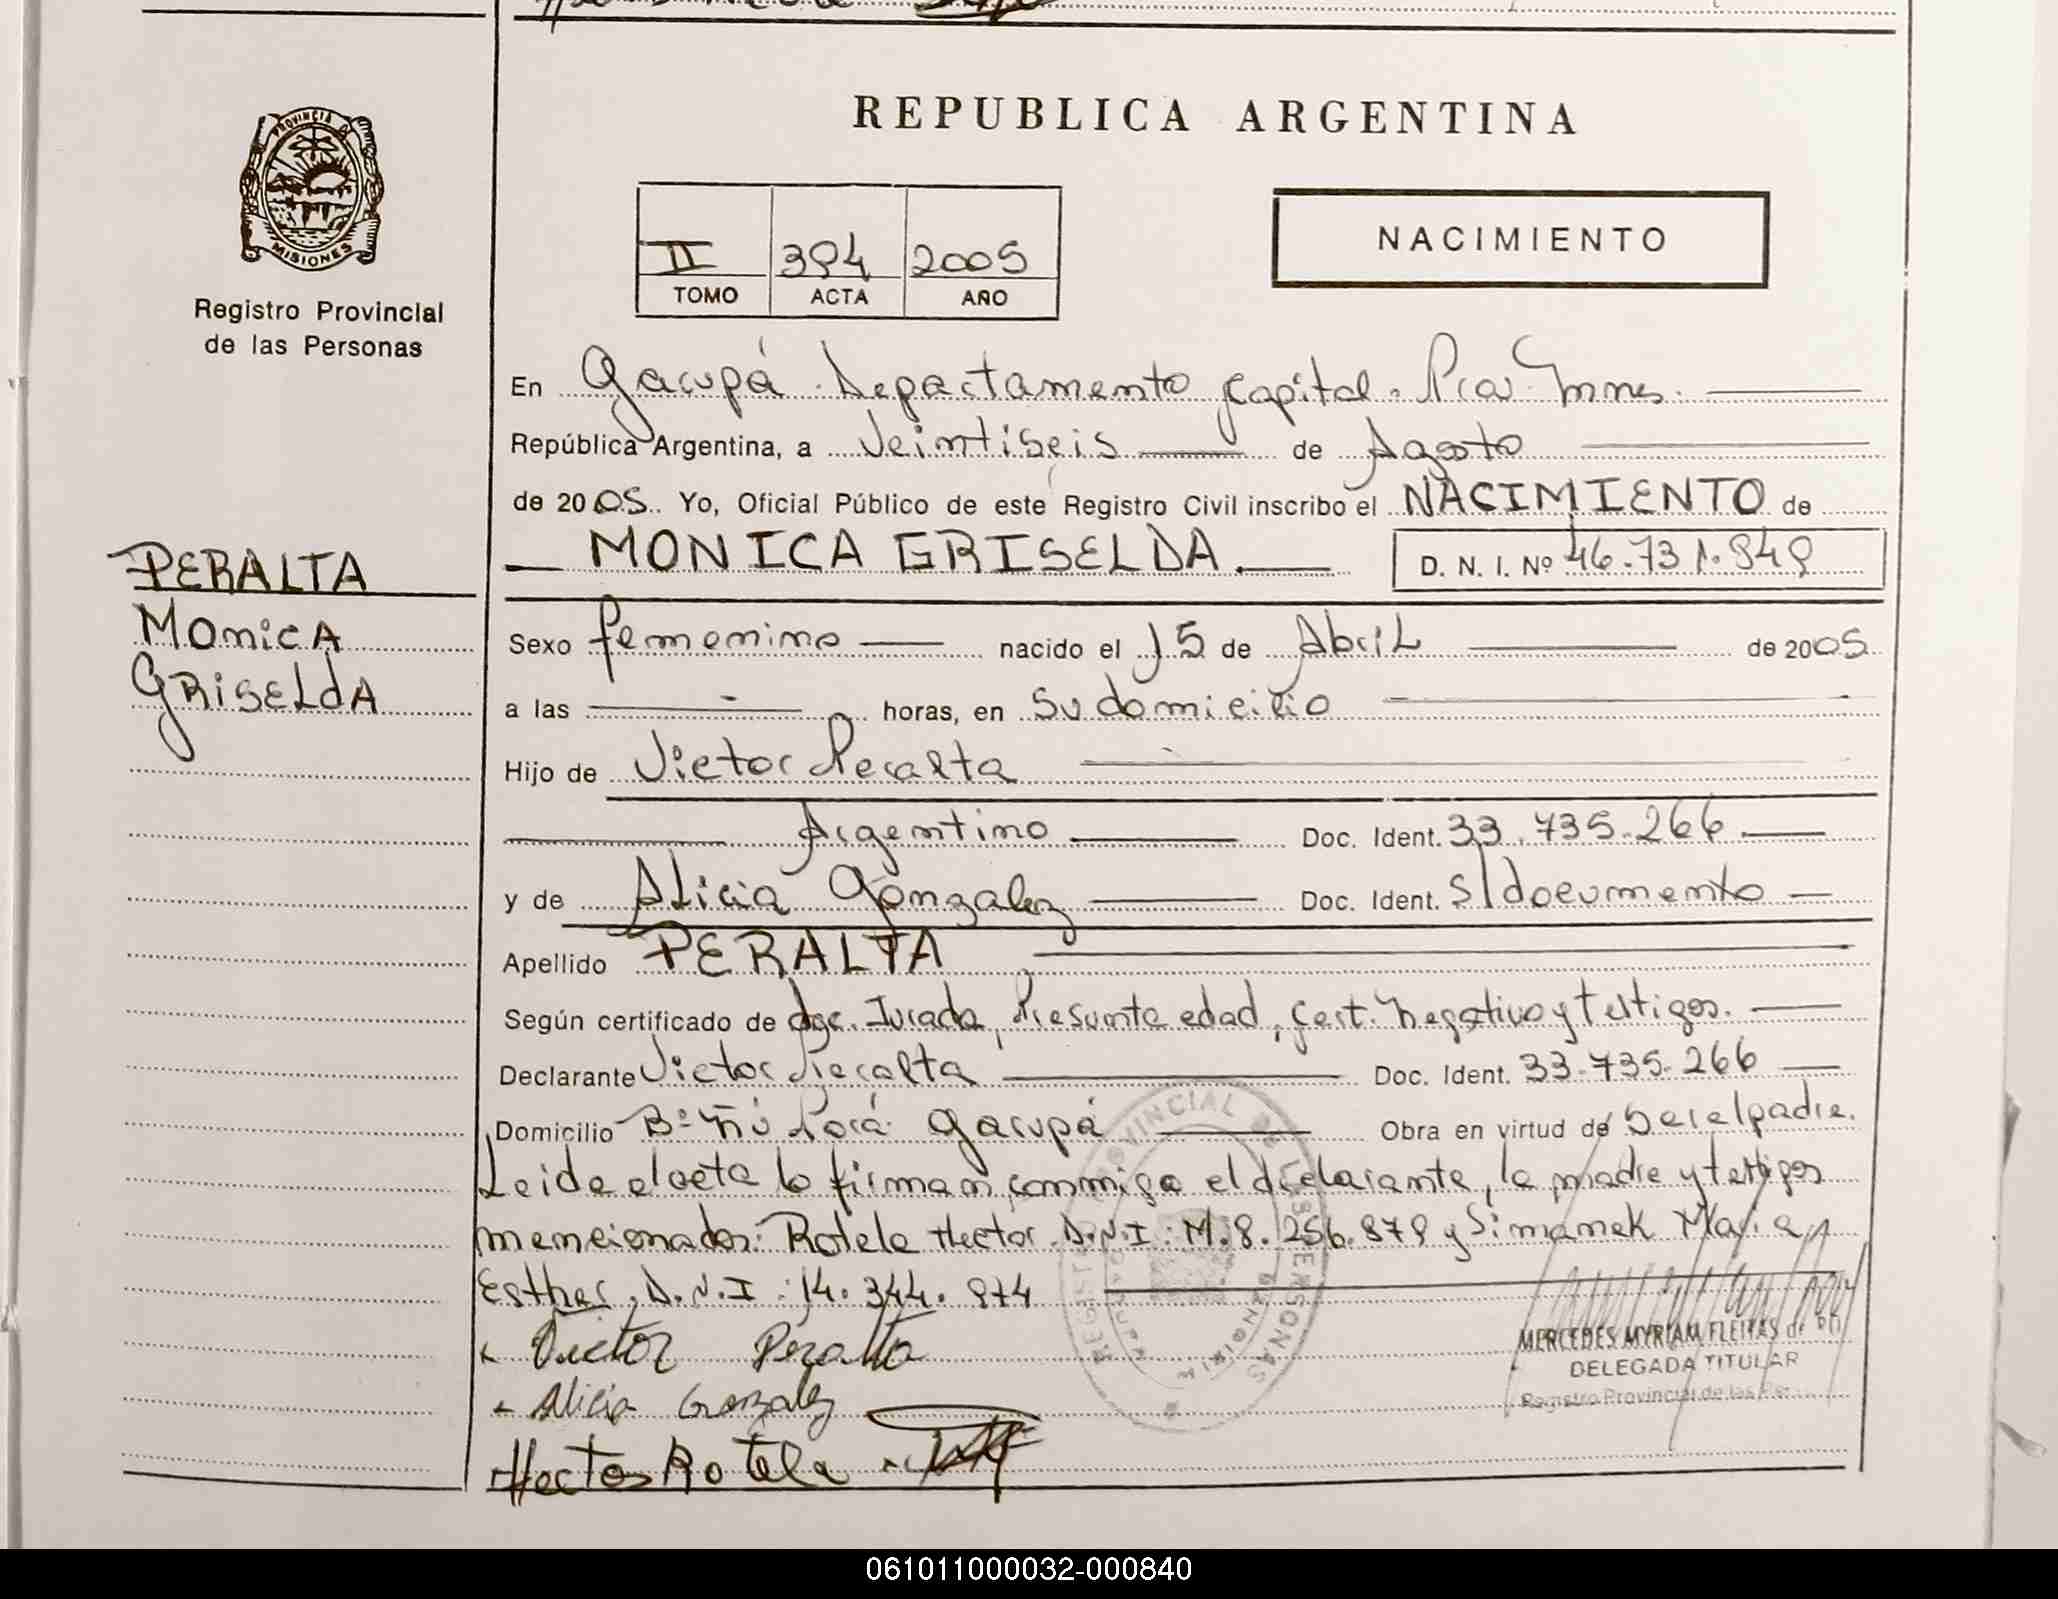 REPUBLICA ARGENTINA
PROVINCIA D
MISIONES
Registro Provincial
de las Personas
II 394 2005
TOMO ACTA AÑO
NACIMIENTO
En Garupá Departamento Capital. Pcia Mnes.
República Argentina, a Veintiseis de Agosto
de 2005. Yo, Oficial Público de este Registro Civil inscribo el NACIMIENTO de
MONICA GRISELDA. D. N. I. Nº 46.731.849
PERALTA
MONICA
GRISELDA
Sexo femenino nacido el 15 de Abril de 2005
a las - horas, en su domicilio
Hijo de Victor Peralta
Argentino Doc. Ident. 33.735.266
y de Alicia Gonzalez Doc. Ident. S/documento
Apellido PERALTA
Según certificado de Jurada, Presunta edad, Cert. Negativo y Testigos.
Declarante Victor Peralta Doc. Ident. 33.735.266
Domicilio Bº Ñú Porá Garupá Obra en virtud de Ser el padre.
Leida el acta la firman conmigo el declarante, la madre y testigos
mencionados: Rotela Hector D.N.I: M.8.256.879 y Simanek Maria
Esther, D.N.I: 14.344.974
Victor Peralta
Alicia Gonzalez
Hector Rotela
REGISTRO PROVINCIAL DE LAS PERSONAS
MERCEDES MYRIAM FLEITAS de
DELEGADA TITULAR
Registro Provincial de las Per
061011000032-000840